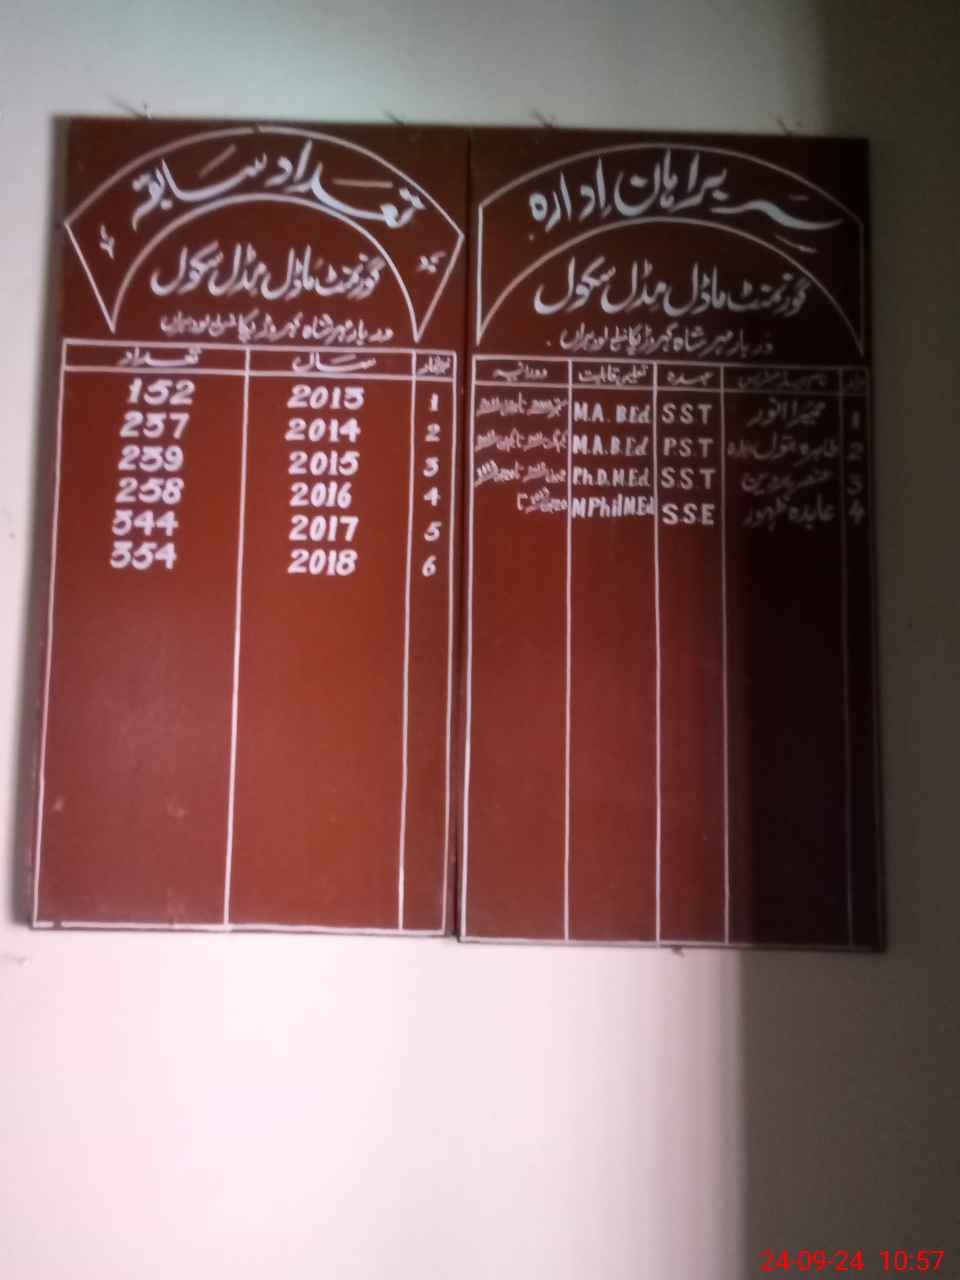 سربراہان ادارہ
گورنمنٹ ماڈل مڈل سکول
دربار مہر شاہ کہروڑپکا ضلع لودہراں
عہدہ تعلیمی قابلیت دورانیہ
1 حمیرا انور S.S.T M.A. B.Ed
2 طاہرہ بتول P.S.T M.A.B.Ed
3 S.S.T Ph.D.M.Ed
4 عابدہ ظہور S.S.E M Phil M.Ed
تعداد سابقہ
گورنمنٹ ماڈل مڈل سکول
دربار مہر شاہ کہروڑپکا ضلع لودہراں
نمبرشمار سال تعداد
1 2013 152
2 2014 237
3 2015 239
4 2016 258
5 2017 344
6 2018 354
24-09-24 10:57